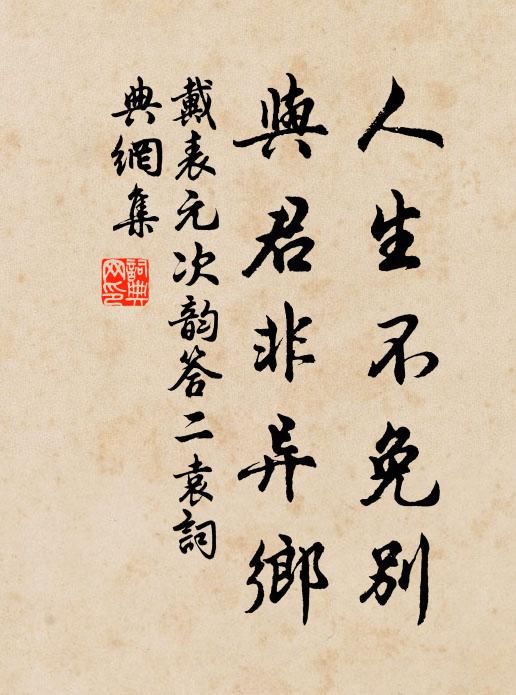 人生不免別
與君非异鄉
戴表元次韵答二袁詞
典網集
詞典
网印